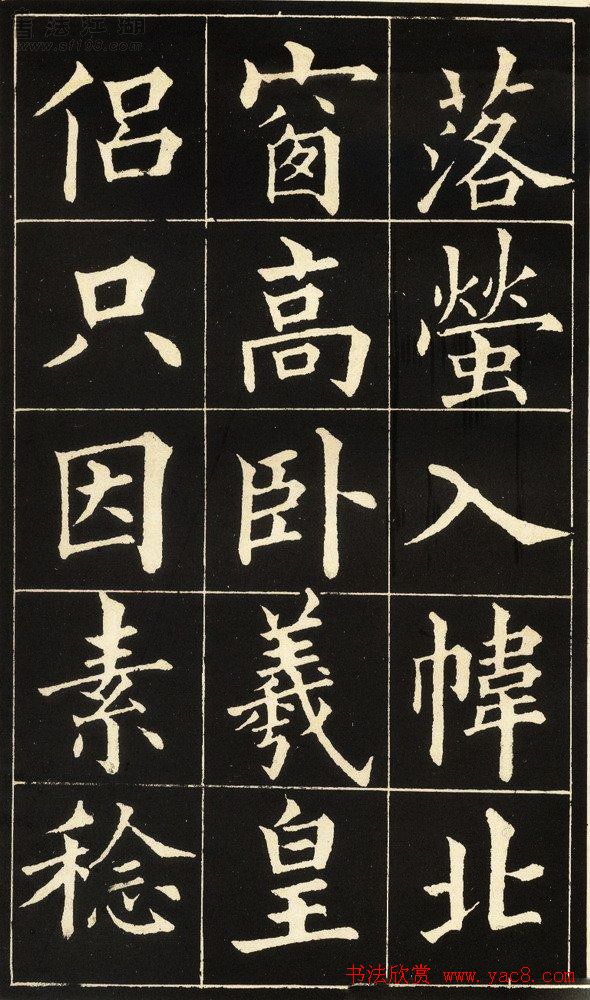 落螢入幃北
窗高卧羲皇
侶只因素稔
書法江湖
www.sf1198.com
书法欣赏 www.yac8.com